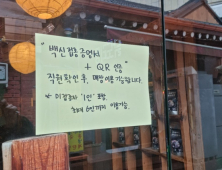 "백신접종증명서
+ QR 인증"
직원확인 후, 매장이용 가능합니다.
* 미접종자 '1인' 포함
최대 6인까지 이용가능.